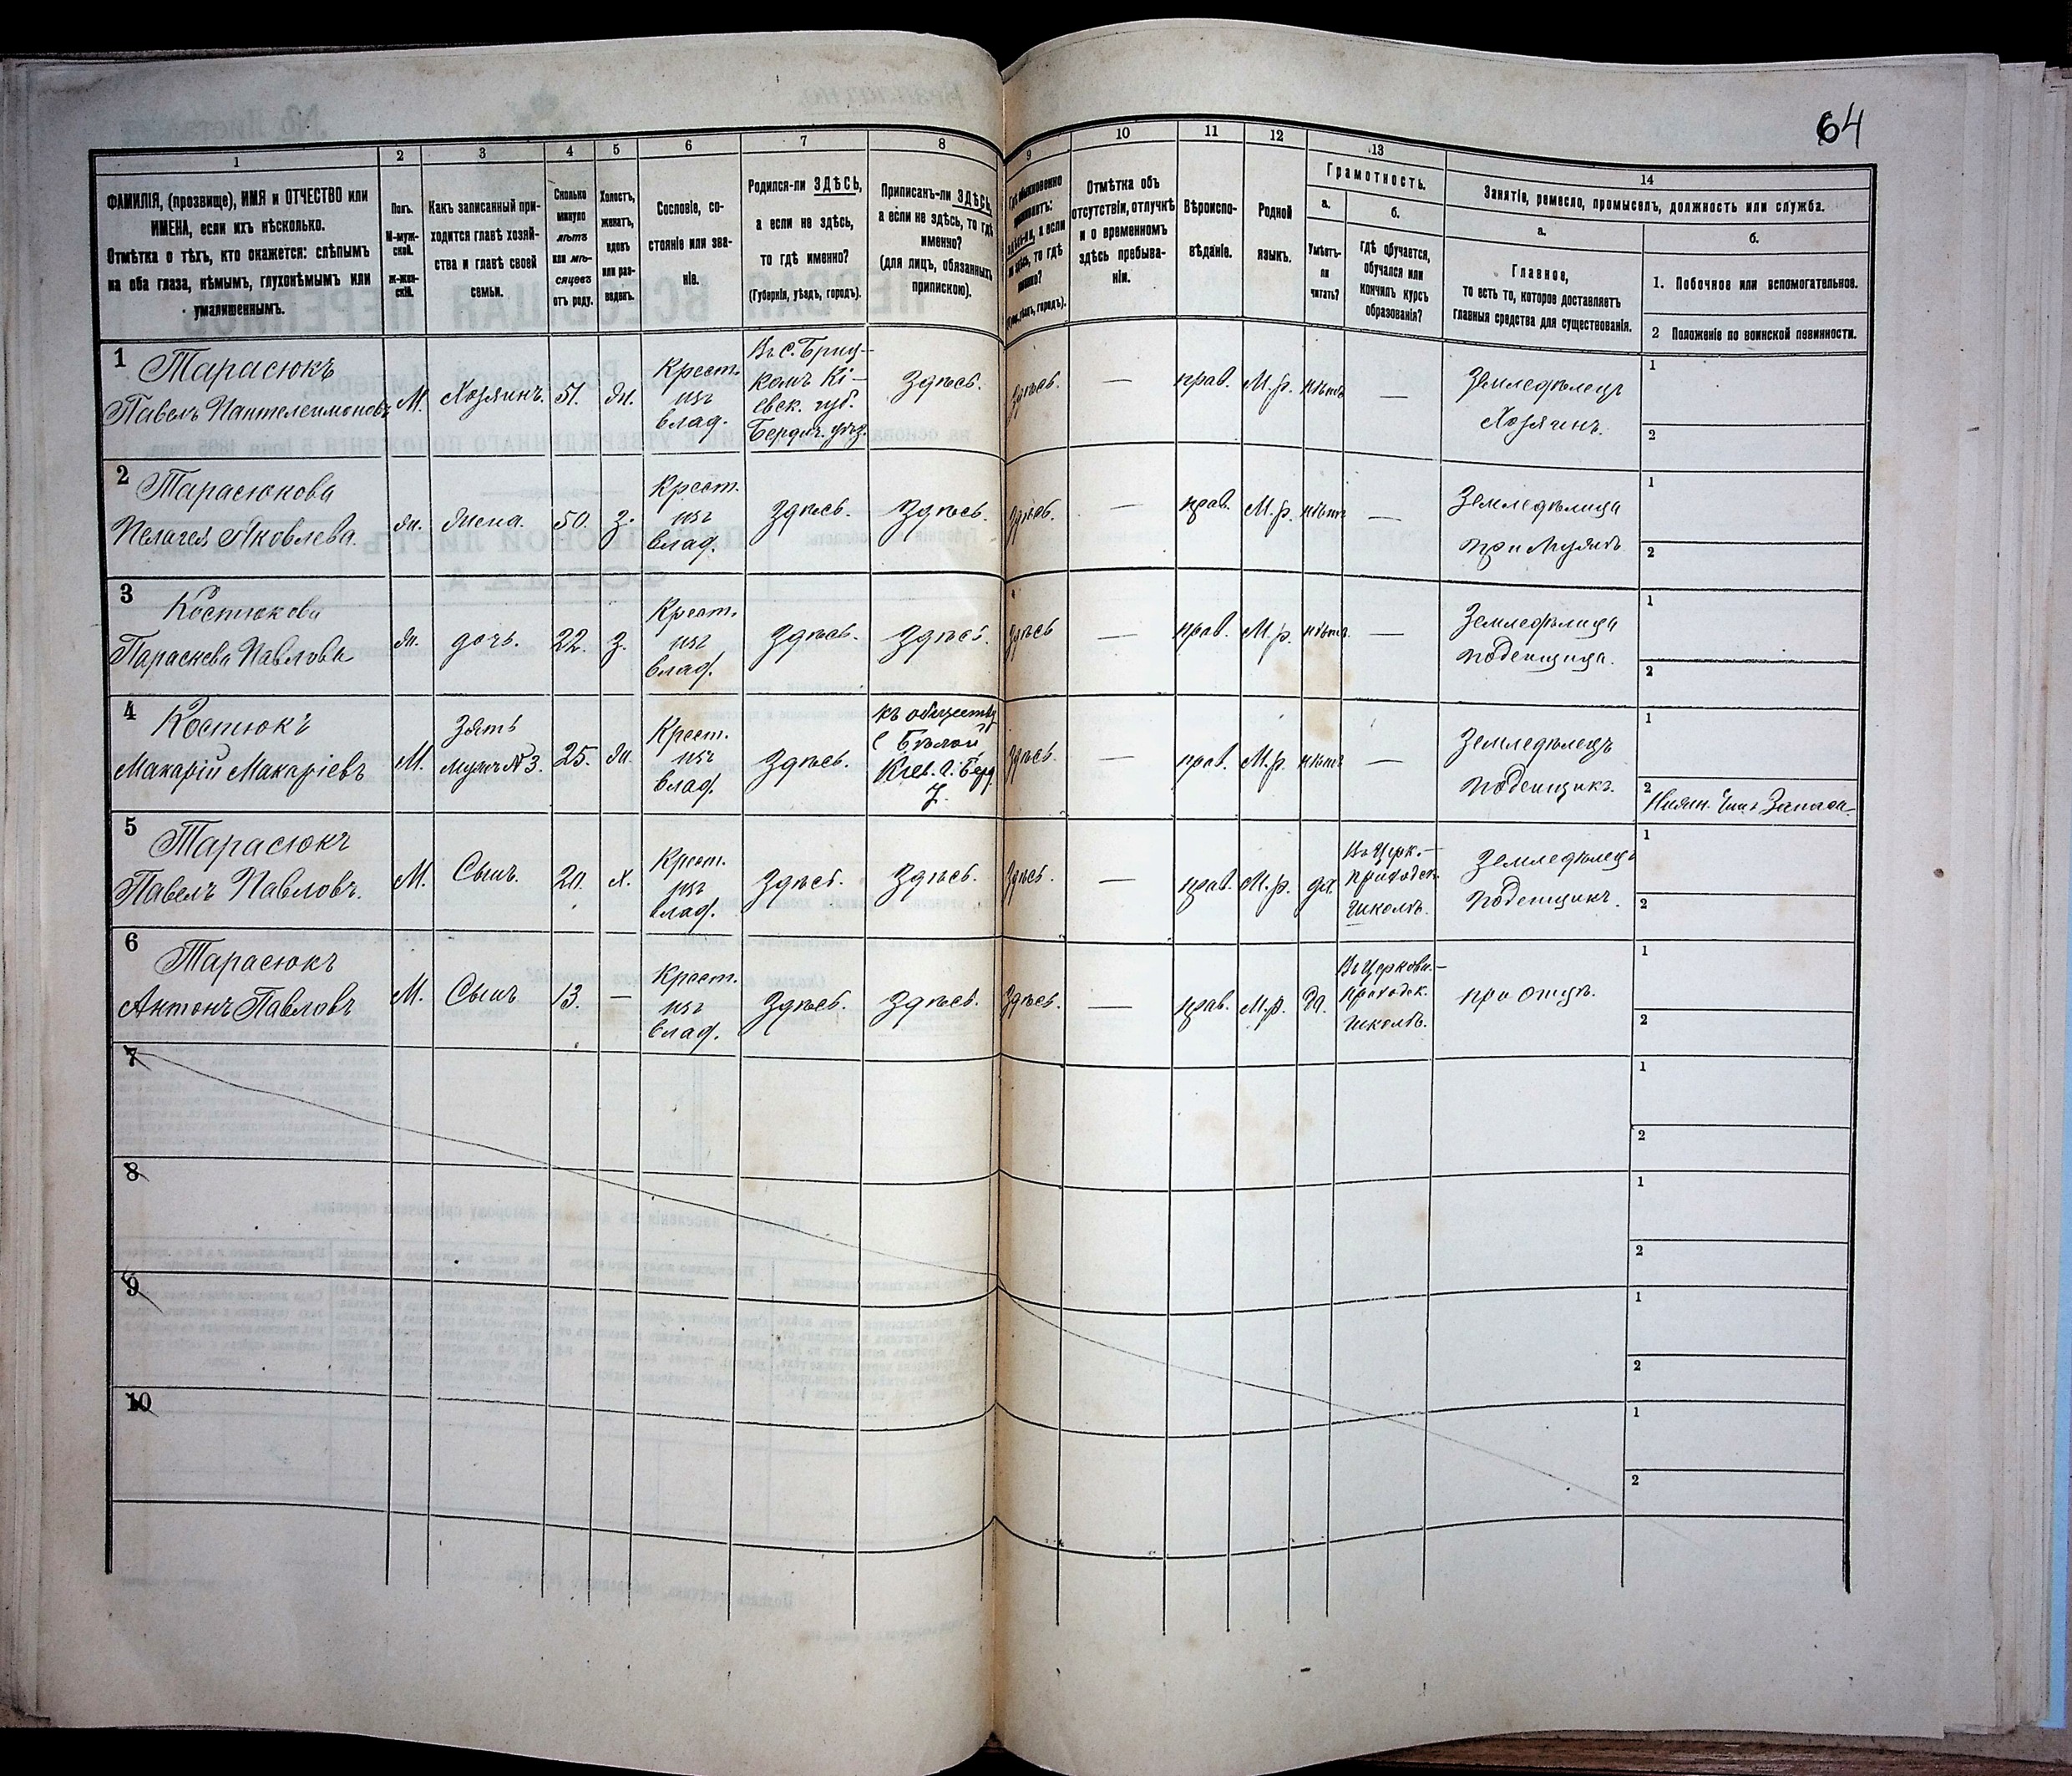 64
1 2 3 4 5 6 7 8 9 10 11 12 13 14
ФАМИЛІЯ, (прозвище), ИМЯ и ОТЧЕСТВО или
ИМЕНА, если ихъ нѣсколько.
Отмѣтка о тѣхъ, кто окажется: слѣпымъ
на оба глаза, нѣмымъ, глухонѣмымъ или
умалишеннымъ.
Полъ.
М-муж-
ской.
ж-жен-
скій.
Какъ записанный при-
ходится главѣ хозяй-
ства и главѣ своей
семьи.
Сколько
минуло
лѣтъ
или мѣ-
сяцевъ
отъ роду.
Холостъ,
женатъ,
вдовъ
или раз-
веденъ.
Сословіе, со-
стояніе или зва-
ніе.
Родился-ли ЗДѢСЬ,
а если не здѣсь,
то гдѣ именно?
(Губернія, уѣздъ, городъ).
Приписанъ-ли ЗДѢСЬ,
а если не здѣсь, то гдѣ
именно?
(для лицъ, обязанныхъ
припискою).
Отмѣтка объ
отсутствіи, отлучкѣ
и о временномъ
здѣсь пребыва-
ніи.
Вѣроиспо-
вѣданіе.
Родной
языкъ.
Грамотность.
а.
Умѣетъ-
ли
читать?
б.
гдѣ обучается,
обучался или
кончилъ курсъ
образованія?
Занятіе, ремесло, промыселъ, должность или служба.
а.
Главное,
то есть то, которое доставляетъ
главныя средства для существованія.
б.
1. Побочное или вспомогательное.
2 Положеніе по воинской повинности.
1
Тарасюкъ
Павелъ Пантелеимоновъ
М.
Хозяинъ.
51.
жн.
Крест.
изъ
влад.
Въ с. Бриц-
комъ Кі-
евск. губ.
Бердич. уѣз.
Здѣсь.
Здѣсь.
—
прав.
М.р.
нѣтъ
—
Земледѣлецъ
Хозяинъ.
1
2
2
Тарасюкова
Пелагея Яковлева.
жн.
Жена.
50.
З.
Крест.
изъ
влад.
Здѣсь.
Здѣсь.
Здѣсь.
—
прав.
М.р.
нѣтъ
—
Земледѣлица
при Мужѣ.
1
2
3
Костюкова
Параскева Павлова
жн.
дочь.
22.
З.
Крест.
изъ
влад.
Здѣсь.
Здѣсь.
Здѣсь
—
прав.
М.р.
нѣтъ.
—
Земледѣлица
поденщица.
1
2
4
Костюкъ
Макарій Макаріевъ
М.
Зять
мужъ №3.
25.
жн.
Крест.
изъ
влад.
Здѣсь.
къ обществу
с Бѣлой
Кіев. г. Берд.
У.
Здѣсь.
—
прав.
М.р.
нѣтъ
—
Земледѣлецъ
поденщикъ.
1
2
Нижн. Чинъ Запаса
5
Тарасюкъ
Павелъ Павловъ.
М.
Сынъ.
20.
х.
Крест.
изъ
влад.
Здѣсь.
Здѣсь.
Здѣсь.
—
прав.
М.р.
да.
Въ Церк.-
приходск.
школѣ.
Земледѣлецъ
поденщикъ.
1
2
6
Тарасюкъ
Антонъ Павловъ
М.
Сынъ
13.
—
Крест.
изъ
влад.
Здѣсь.
Здѣсь.
Здѣсь.
—
прав.
М.р.
да.
Въ Церковн.-
приходск.
школѣ.
при отцѣ.
1
2
7
1
2
8
1
2
9
1
2
10
1
2